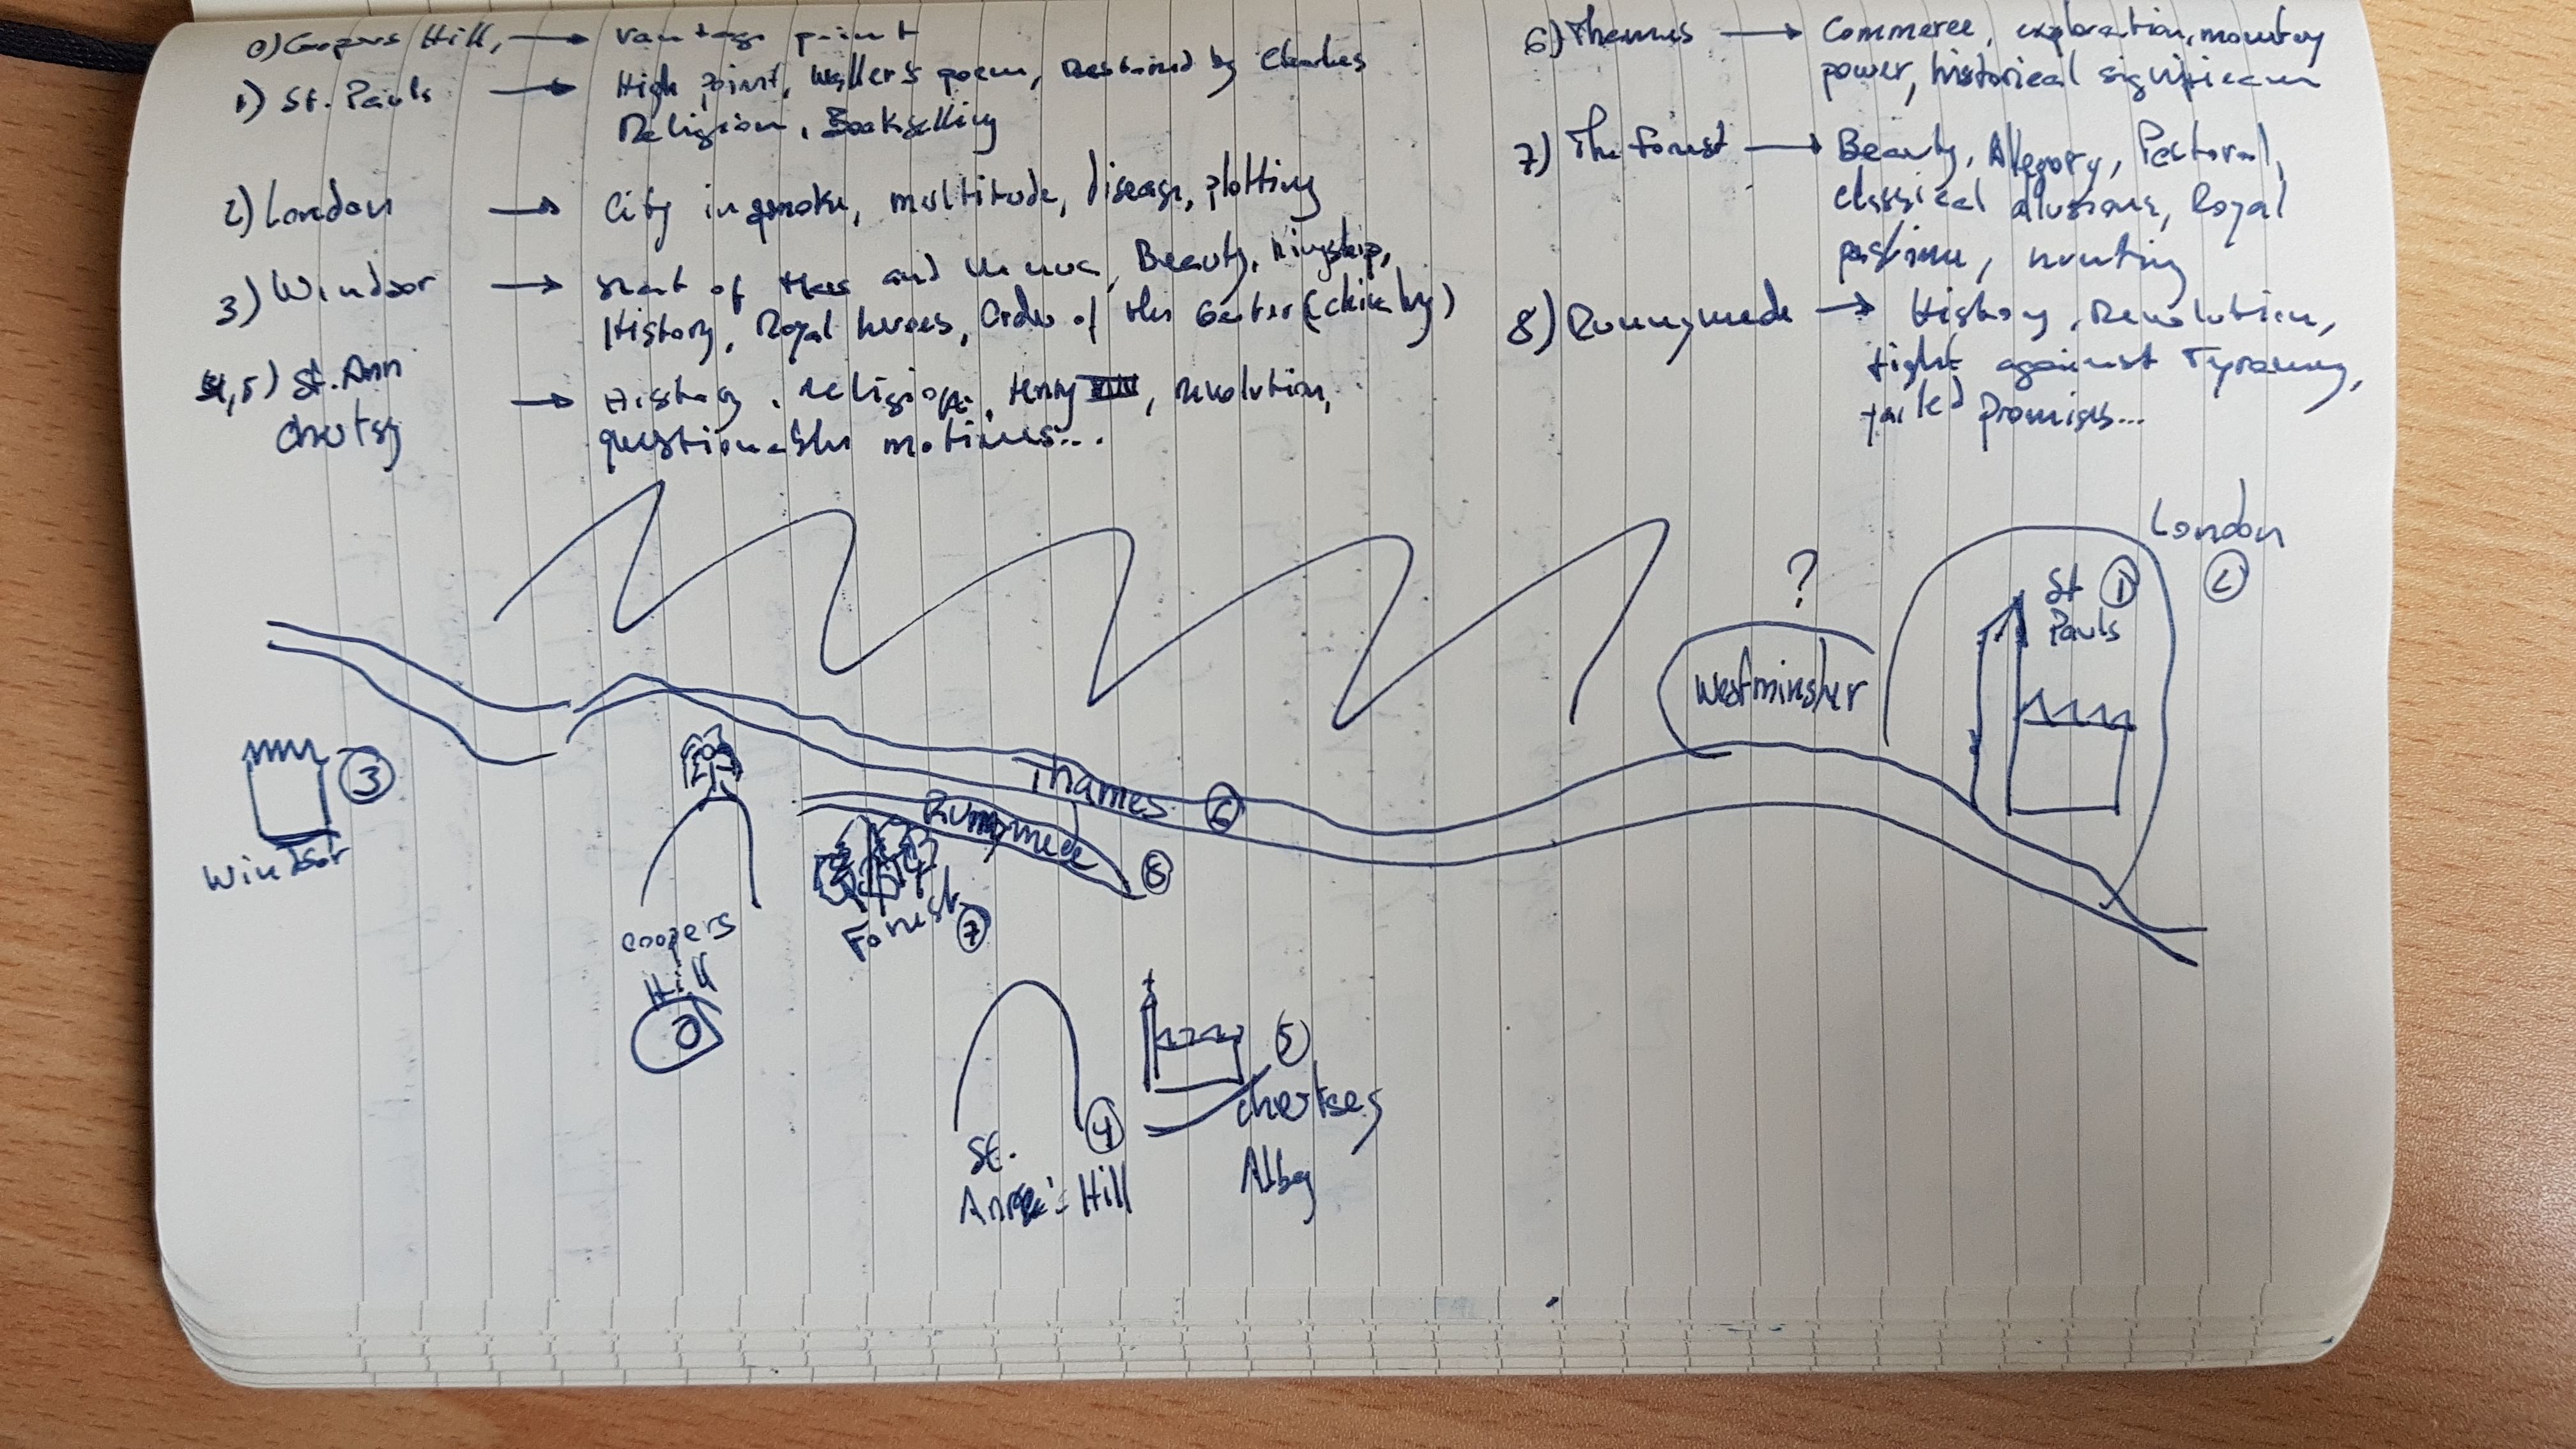 0) Coopers Hill, → vantage point
1) St. Pauls → High point, Waller's poem, Restored by Charles
Religion, Bookselling
2) London → City in smoke, multitude, disease, plotting
3) Windsor → of Mars and Beauty, Kingship,
History, Royal heroes, Order of the Garter (chivalry)
4,5) St. Ann
Chertsy → History, religion, Henry VIII, revolution,
questionable motives...
6) Thames → Commerce, exploration,
power, historical significance
7) The Forest → Beauty, Allegory, Pastoral,
classical allusions, Royal
pastime, hunting
8) Runnymede → History, Revolution,
fight against Tyranny,
failed promises...
London
2
St 1
Pauls
?
Westminster
3
Windsor
Thames 6
Runnymede
8
Forest
7
Coopers
Hill
0
St.
4
Anne's Hill
5
Chertsey
Abbey